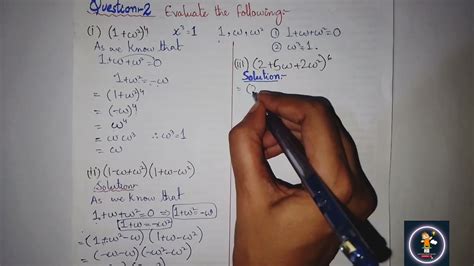 Question:-2 Evaluate the Following:-
(i) (1+ω²)⁴ x³=1 1,ω,ω² ① 1+ω+ω²=0
② ω³=1.
As we know that
1+ω+ω²=0
1+ω²=-ω
= (1+ω²)⁴
= (-ω)⁴
= ω⁴
= ω ω³ ∴ω³=1
= ω
(ii) (1-ω+ω²)(1+ω-ω²)
Solution:-
As we know that
1+ω+ω²=0 ⇒ 1+ω²=-ω
1+ω=-ω²
=(1+ω²-ω) (1+ω-ω²)
=(-ω-ω) (-ω²-ω²)
(iii) (2+5ω+2ω²)⁶
Solution:-
= (2